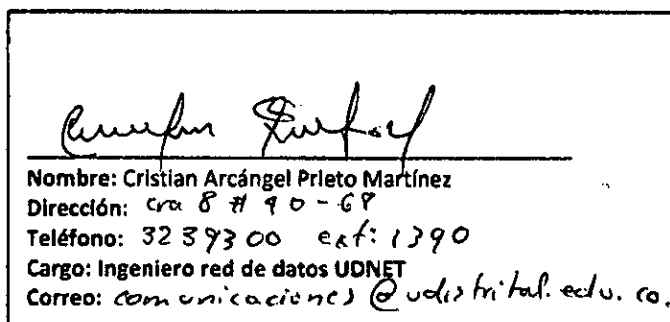 Nombre: Cristian Arcángel Prieto Martínez
Dirección: cra 8 # 40-68
Teléfono: 3239300 ext: 1390
Cargo: Ingeniero red de datos UDNET
Correo: comunicaciones@udistrital.edu.co.